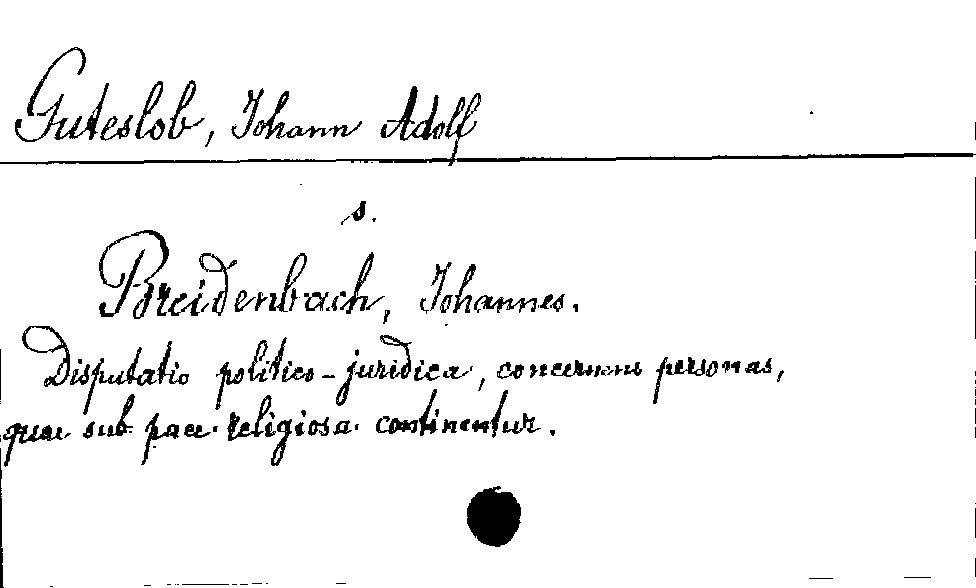 Guteslob, Johann Adolf
s.
Breidenbach, Johannes.
Disputatio politico-juridica, concernens personas,
quae sub pace religiosa continentur.